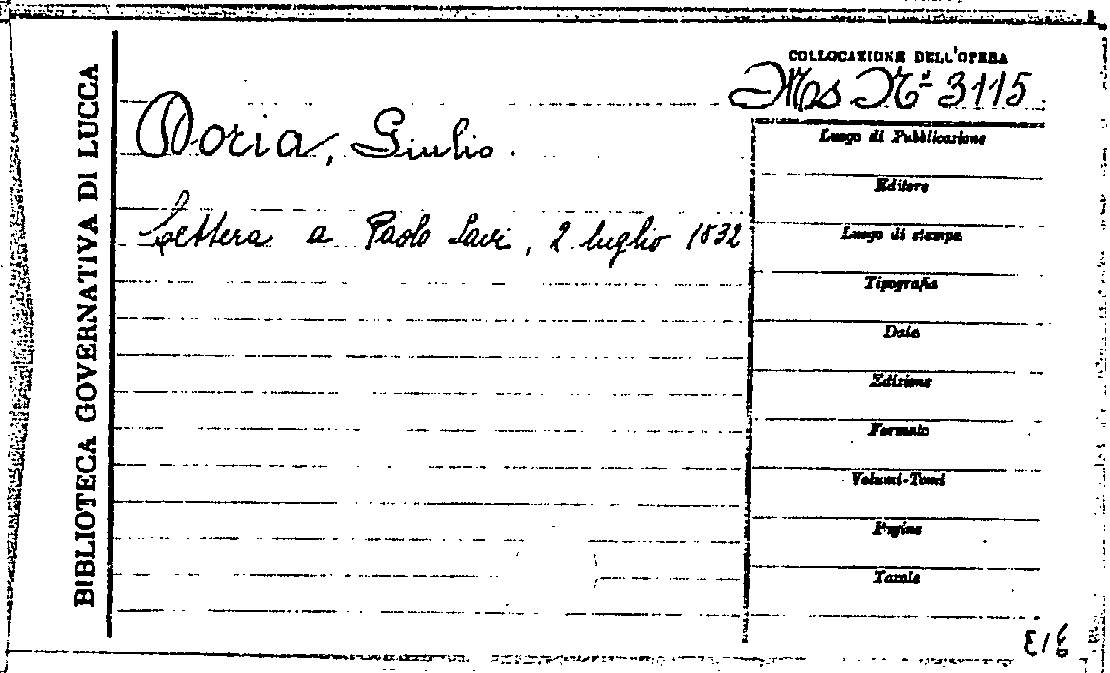 BIBLIOTECA GOVERNATIVA DI LUCCA
COLLOCAZIONE DELL'OPERA
Ms Nº 3115
Doria, Giulio.
Lettera a Paolo Savi, 2 luglio 1832
Luogo di Pubblicazione
Editore
Luogo di stampa
Tipografia
Data
Edizione
Formato
Volumi-Tomi
Pagine
Tavole